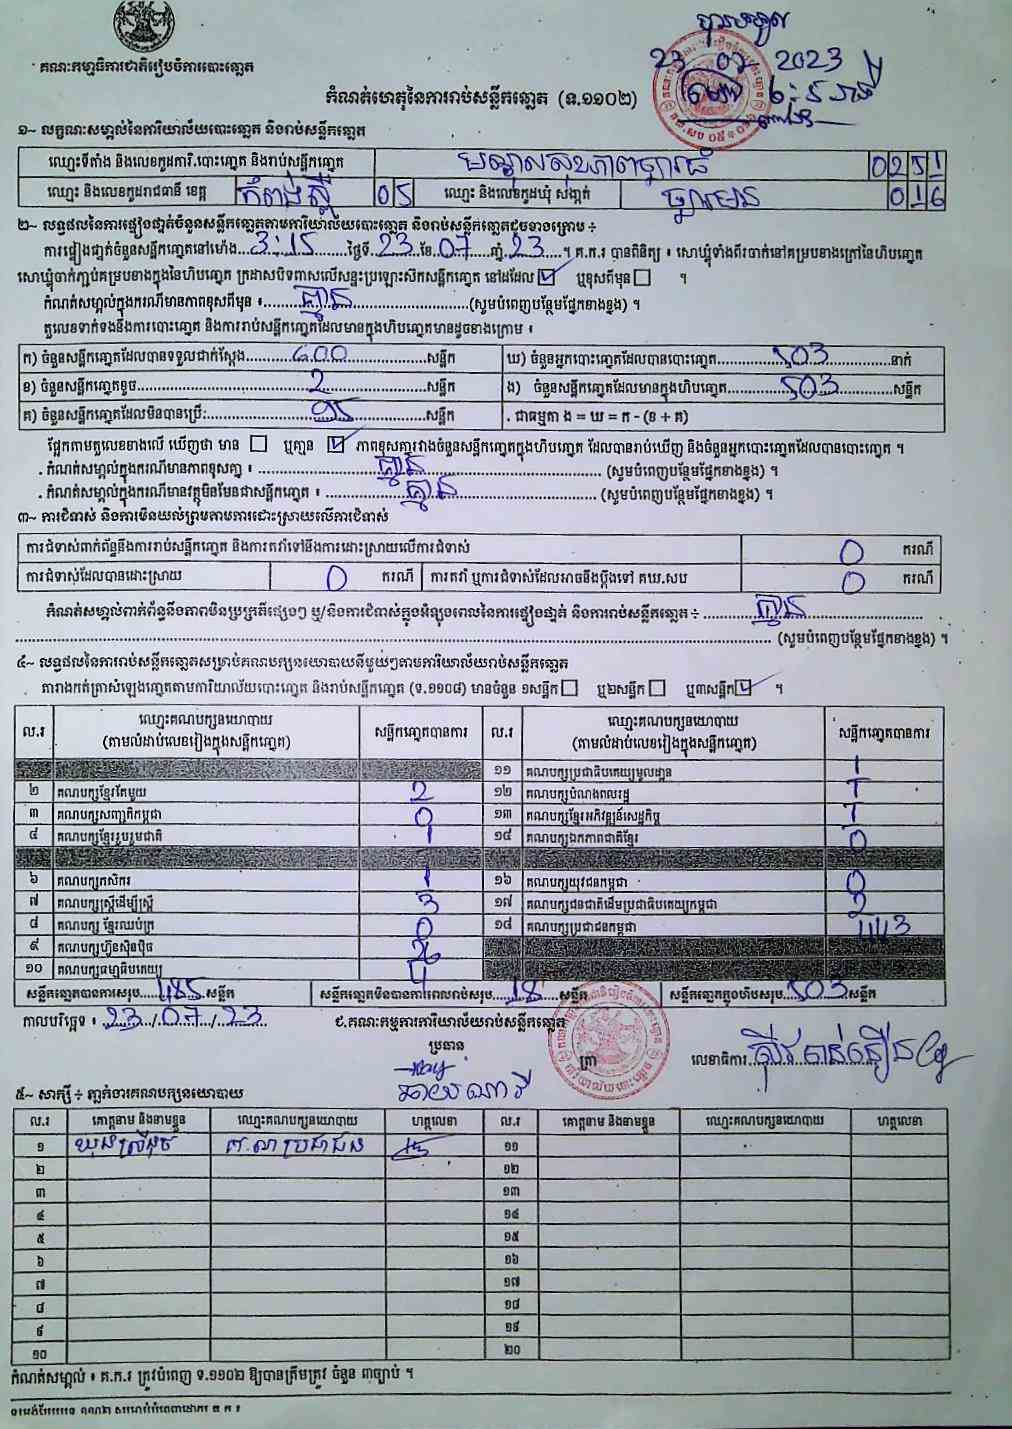 បានទទួល
23 07 2023
គណៈកម្មាធិការជាតិរៀបចំការបោះឆ្នោត
កំណត់ហេតុនៃការរាប់សន្លឹកឆ្នោត (ទ.១១០២)
១~ លក្ខណៈសម្គាល់នៃការិយាល័យបោះឆ្នោត និងរាប់សន្លឹកឆ្នោត
ឈ្មោះទីតាំង និងលេខកូដការិ.បោះឆ្នោត និងរាប់សន្លឹកឆ្នោត 0251
ឈ្មោះ និងលេខកូដរាជធានី ខេត្ត កំពង់ស្ពឺ 05 ឈ្មោះ និងលេខកូដឃុំ សង្កាត់ ច្បារមន 016
២~ លទ្ធផលនៃការផ្ទៀងផ្ទាត់ចំនួនសន្លឹកឆ្នោតតាមការិយាល័យបោះឆ្នោត និងរាប់សន្លឹកឆ្នោតដូចខាងក្រោម ÷
ការផ្ទៀងផ្ទាត់ចំនួនសន្លឹកឆ្នោតនៅម៉ោង 3:15 ថ្ងៃទី 23 ខែ 07 ឆ្នាំ 23 ។ គ.ក.រ បានពិនិត្យ ៖ សោឃ្លុំទាំងពីរចាក់នៅគម្របខាងក្រៅនៃហិបឆ្នោត
សោឃ្លុំចាក់ភ្ជាប់គម្របខាងក្នុងនៃហិបឆ្នោត ក្រដាសបិទពាសលើសន្ទះប្រឡោះស៊កសន្លឹកឆ្នោត នៅដដែល ☑ ឬខុសពីមុន ☐ ។
កំណត់សម្គាល់ក្នុងករណីមានភាពខុសពីមុន ៖ គ្មាន (សូមបំពេញបន្ថែមផ្នែកខាងខ្នង) ។
តួលេខទាក់ទងនឹងការបោះឆ្នោត និងការរាប់សន្លឹកឆ្នោតដែលមានក្នុងហិបឆ្នោតមានដូចខាងក្រោម ៖
ក) ចំនួនសន្លឹកឆ្នោតដែលបានទទួលជាក់ស្តែង 600 សន្លឹក ឃ) ចំនួនអ្នកបោះឆ្នោតដែលបានបោះឆ្នោត 503 នាក់
ខ) ចំនួនសន្លឹកឆ្នោតខូច 2 សន្លឹក ង) ចំនួនសន្លឹកឆ្នោតដែលមានក្នុងហិបឆ្នោត 503 សន្លឹក
គ) ចំនួនសន្លឹកឆ្នោតដែលមិនបានប្រើ: 95 សន្លឹក . ជាធម្មតា ង = ឃ = ក - (ខ + គ)
ផ្អែកតាមតួលេខខាងលើ ឃើញថា មាន ☐ ឬគ្មាន ☑ ភាពខុសគ្នារវាងចំនួនសន្លឹកឆ្នោតក្នុងហិបឆ្នោត ដែលបានរាប់ឃើញ និងចំនួនអ្នកបោះឆ្នោតដែលបានបោះឆ្នោត ។
. កំណត់សម្គាល់ក្នុងករណីមានភាពខុសគ្នា ៖ គ្មាន (សូមបំពេញបន្ថែមផ្នែកខាងខ្នង) ។
. កំណត់សម្គាល់ក្នុងករណីមានវត្ថុមិនមែនជាសន្លឹកឆ្នោត ៖ គ្មាន (សូមបំពេញបន្ថែមផ្នែកខាងខ្នង) ។
៣~ ការជំទាស់ និងការមិនយល់ព្រមតាមការដោះស្រាយលើការជំទាស់
ការជំទាស់ពាក់ព័ន្ធនឹងការរាប់សន្លឹកឆ្នោត និងការតវ៉ាទៅនឹងការដោះស្រាយលើការជំទាស់ 0 ករណី
ការជំទាស់ដែលបានដោះស្រាយ 0 ករណី ការតវ៉ា ឬការជំទាស់ដែលអាចនឹងប្តឹងទៅ គឃ.សប 0 ករណី
កំណត់សម្គាល់ពាក់ព័ន្ធនឹងភាពមិនប្រក្រតីផ្សេងៗ ឬ/និងការជំទាស់ក្នុងអំឡុងពេលនៃការផ្ទៀងផ្ទាត់ និងការរាប់សន្លឹកឆ្នោត ÷ គ្មាន
(សូមបំពេញបន្ថែមផ្នែកខាងខ្នង) ។
៤~ លទ្ធផលនៃការរាប់សន្លឹកឆ្នោតសម្រាប់គណបក្សនយោបាយនីមួយៗតាមការិយាល័យរាប់សន្លឹកឆ្នោត
តារាងកត់ត្រាសំឡេងឆ្នោតតាមការិយាល័យបោះឆ្នោត និងរាប់សន្លឹកឆ្នោត (ទ.១១០៨) មានចំនួន ១សន្លឹក ☐ ឬ២សន្លឹក ☐ ឬ៣សន្លឹក ☑ ។
ល.រ ឈ្មោះគណបក្សនយោបាយ (តាមលំដាប់លេខរៀងក្នុងសន្លឹកឆ្នោត) សន្លឹកឆ្នោតបានការ ល.រ ឈ្មោះគណបក្សនយោបាយ (តាមលំដាប់លេខរៀងក្នុងសន្លឹកឆ្នោត) សន្លឹកឆ្នោតបានការ
១១ គណបក្សប្រជាធិបតេយ្យមូលដ្ឋាន 1
២ គណបក្សខ្មែរតែមួយ 2 ១២ គណបក្សបំណងពលរដ្ឋ 1
៣ គណបក្សសញ្ជាតិកម្ពុជា ១៣ គណបក្សខ្មែរអភិវឌ្ឍន៍សេដ្ឋកិច្ច 1
៤ គណបក្សខ្មែររួបរួមជាតិ ១៤ គណបក្សឯកភាពជាតិខ្មែរ 0
៦ គណបក្សកសិករ 1 ១៦ គណបក្សយុវជនកម្ពុជា 0
៧ គណបក្សស្ត្រីដើម្បីស្ត្រី 3 ១៧ គណបក្សជនជាតិដើមប្រជាធិបតេយ្យកម្ពុជា 2
៨ គណបក្ស ខ្មែរឈប់ក្រ 0 ១៨ គណបក្សប្រជាជនកម្ពុជា 443
៩ គណបក្សហ្វ៊ុនស៊ិនប៉ិច 26
១០ គណបក្សធម្មាធិបតេយ្យ 4
សន្លឹកឆ្នោតបានការសរុប 485 សន្លឹក សន្លឹកឆ្នោតមិនបានការពេលរាប់សរុប 18 សន្លឹក សន្លឹកឆ្នោតក្នុងហិបសរុប 503 សន្លឹក
កាលបរិច្ឆេទ ៖ 23/07/23 ៩.គណៈកម្មការការិយាល័យរាប់សន្លឹកឆ្នោត
ប្រធាន ត្រា លេខាធិការ
៥~ សាក្សី ÷ ភ្នាក់ងារគណបក្សនយោបាយ
ល.រ គោត្តនាម និងនាមខ្លួន ឈ្មោះគណបក្សនយោបាយ ហត្ថលេខា ល.រ គោត្តនាម និងនាមខ្លួន ឈ្មោះគណបក្សនយោបាយ ហត្ថលេខា
១ ១១
២ ១២
៣ ១៣
៤ ១៤
៥ ១៥
៦ ១៦
៧ ១៧
៨ ១៨
៩ ១៩
១០ ២០
កំណត់សម្គាល់ ៖ គ.ក.រ ត្រូវបំពេញ ទ.១១០២ ឱ្យបានត្រឹមត្រូវ ចំនួន ៣ច្បាប់ ។